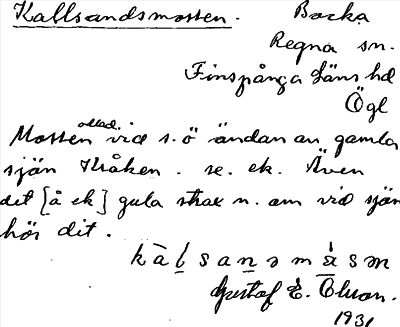 Kallsandsmossen. Backa
Regna sn.
Finspånga läns hd
Ögl
Mossen vid s.ö ändan av gamla
sjön Kråken. se. ek. Även
det [å ek] gula strax n. om vid sjön
hör dit.
Gustaf E. Olson.
1931